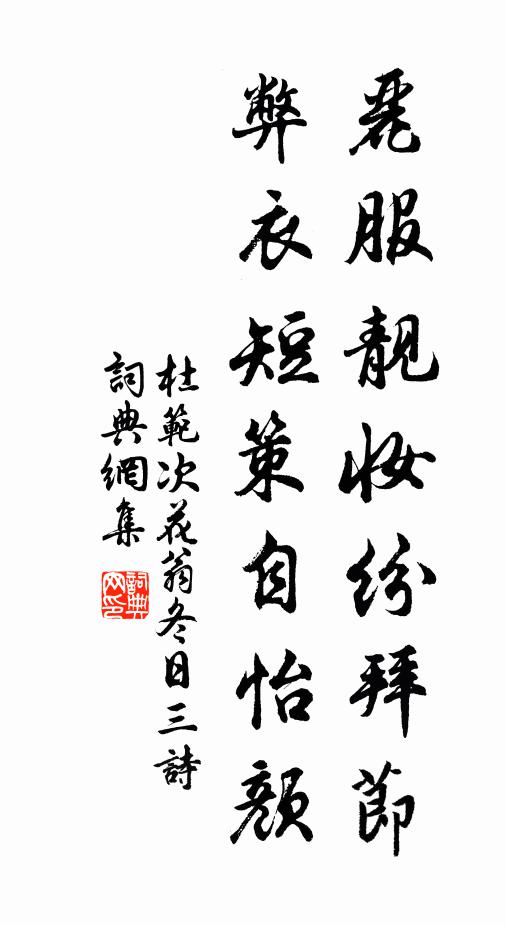 麗服靚妝紛拜節
弊衣短策自怡顏
杜範次花翁冬日三詩
詞典網集
詞典網印